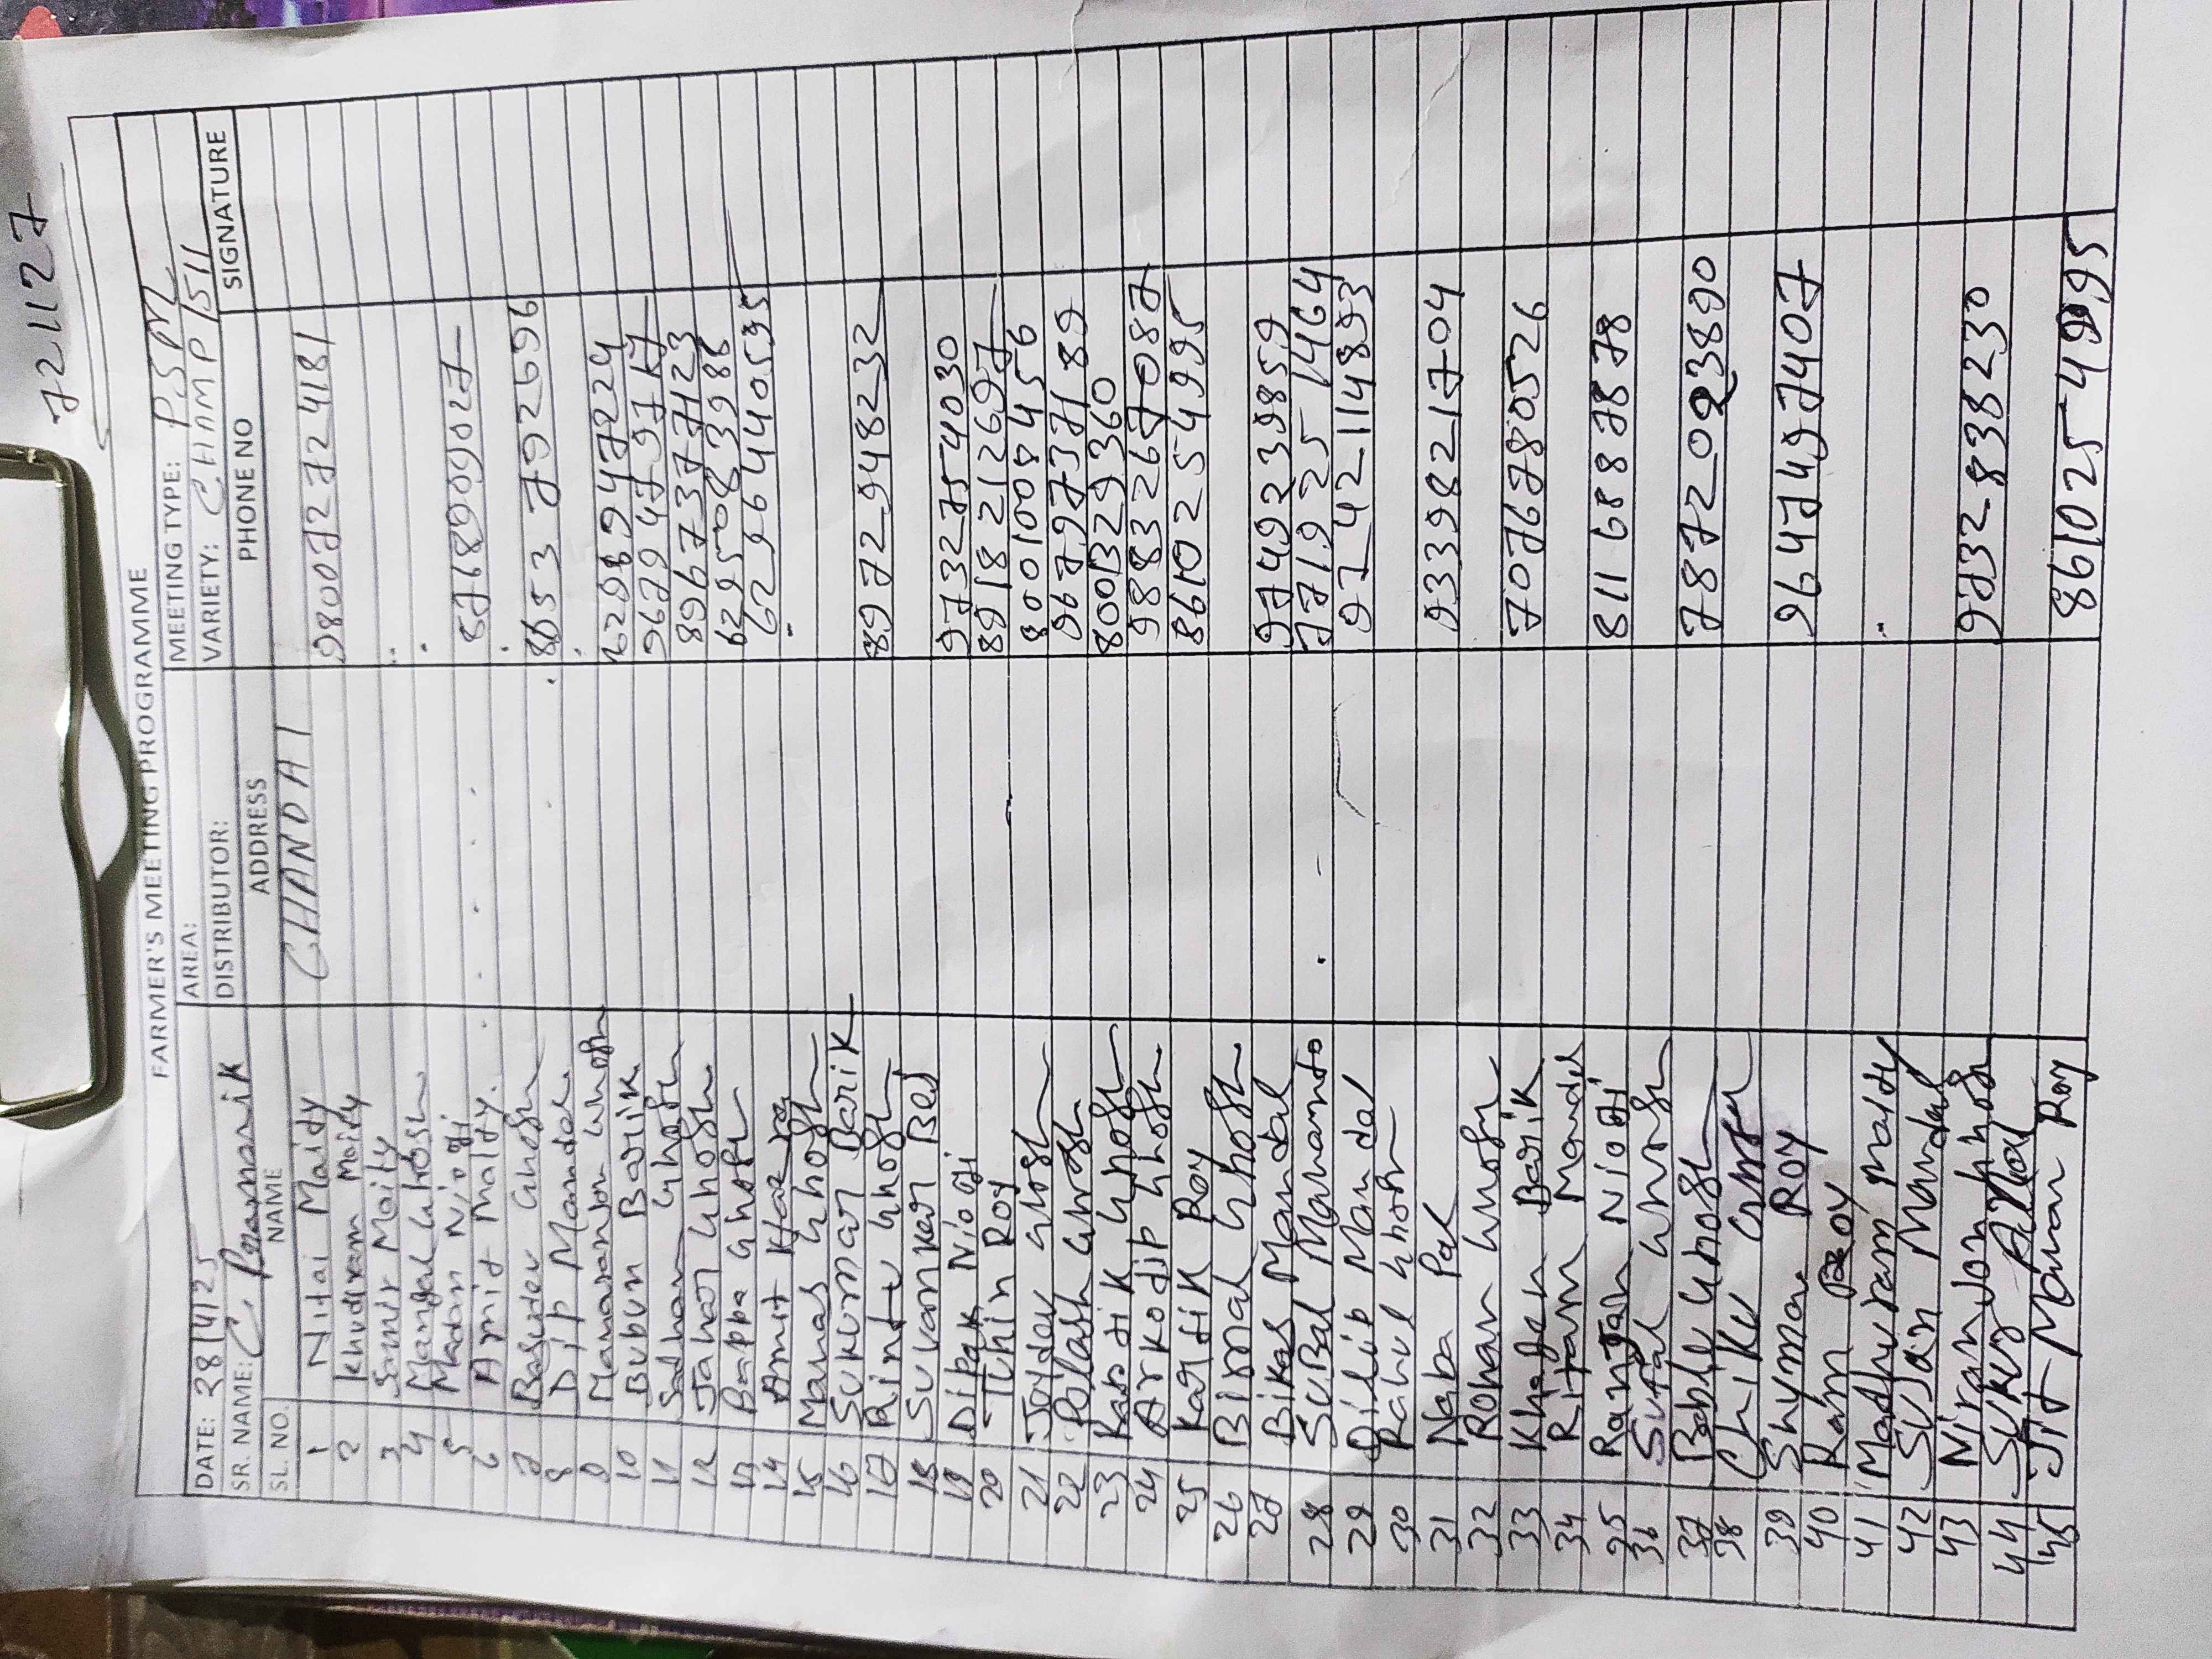 721127
FARMER'S MEETING PROGRAMME
DATE: 28/4/25 AREA: MEETING TYPE: PSM
SR. NAME: C. Pramanik DISTRIBUTOR: VARIETY: CHAMP 1511
SL. NO. NAME ADDRESS PHONE NO SIGNATURE
1 Nitai Maidy CHANDAI 9800727241 81
2 Khudiram Maidy
3 Samir Maity
4 Mangal Ghosh
5 Madan Niogi 8768909027
6 Amit Maldy.
7 Basudev Ghosh 8653792696
8 Dip Mandal
9 Manoranjon Ghosh 6289947224
10 Bubun Barik 9679479717
11 Sadhan Ghosh 8967377423
12 Jahar Ghosh 6295083988
13 Bappa Ghosh 6296440535
14 Amit Hazra
15 Manas Ghosh
16 Sukumar Barik 8972948232
17 Rintu Ghosh
18 Suvankar Bej 9732754030
19 Dipak Niogi 8918212697
20 Tuhin Roy 8001008456
21 Joydev Ghosh 9679737189
22 Polash Ghosh 8001329360
23 Kartik Ghosh 9883267087
24 Arkodip Ghosh 8610254995
25 Kartik Roy
26 Bimal Ghosh 9749239859
27 Bikas Mandal 7719251464
28 Subal Mahanto 9742114893
29 Dilip Mandal
30 Rahul Ghosh 9339821704
31 Naba Pal
32 Rohan Ghosh 7076780526
33 Khagen Barik
34 Ritam Mandal 8116887878
35 Ranjan Niogi
36 Sufal Ghosh 7872023890
37 Bablu Ghosh
38 Chiku Ghosh 9647497407
39 Shymal Roy
40 Ram Roy
41 Madhuram Maldy
42 Sujan Mandal 9732838230
43 Niranjon Ghosh
44 Sukur
45 Jit Mohan Roy 8610254995